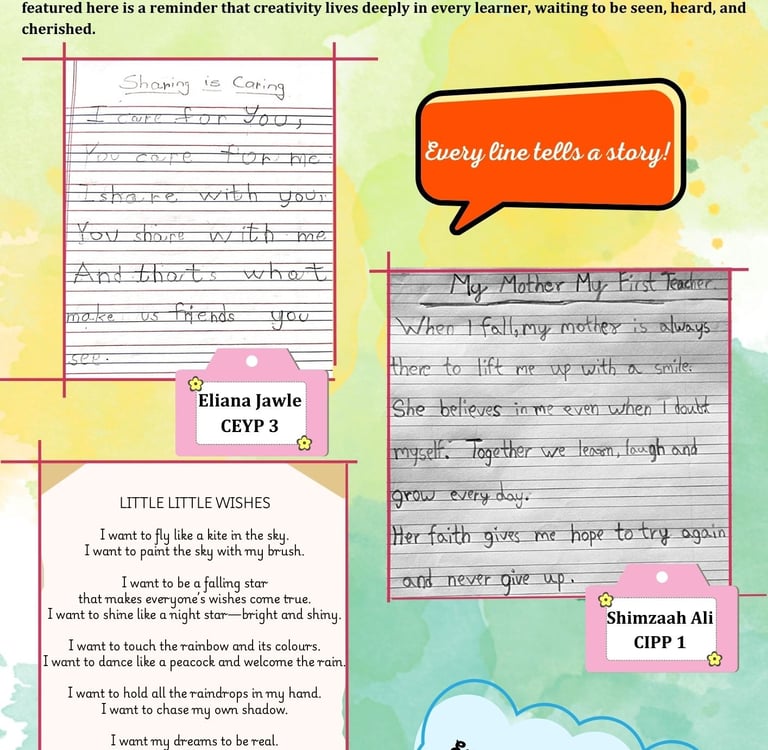 featured here is a reminder that creativity lives deeply in every learner, waiting to be seen, heard, and
cherished.
Sharing is Caring
I care for You,
You care for me
I share with you,
You share with me
And thats what
make us friends you
see.
Eliana Jawle
CEYP 3
Every line tells a story!
My Mother My First Teacher.
When I fall, my mother is always
there to lift me up with a smile.
She believes in me even when I doubt
myself. Together we learn, laugh and
grow every day.
Her faith gives me hope to try again
and never give up.
Shimzaah Ali
CIPP 1
LITTLE LITTLE WISHES
I want to fly like a kite in the sky.
I want to paint the sky with my brush.
I want to be a falling star
that makes everyone's wishes come true.
I want to shine like a night star—bright and shiny.
I want to touch the rainbow and its colours.
I want to dance like a peacock and welcome the rain.
I want to hold all the raindrops in my hand.
I want to chase my own shadow.
I want my dreams to be real.